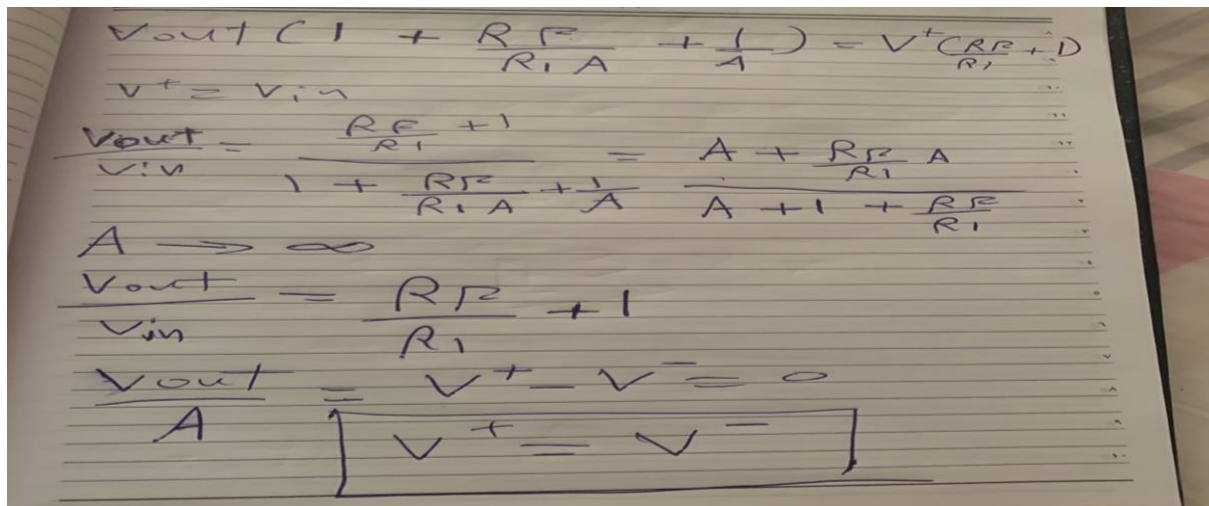 Vout ( 1 + RF/R1A + 1/A ) = V⁺ (RF/R1 + 1)
V⁺ = Vin
Vout/Vin = (RF/R1 + 1)/(1 + RF/R1A + 1/A) = (A + RF/R1 A)/(A + 1 + RF/R1)
A → ∞
Vout/Vin = RF/R1 + 1
Vout/A = V⁺ - V⁻ = 0
V⁺ = V⁻